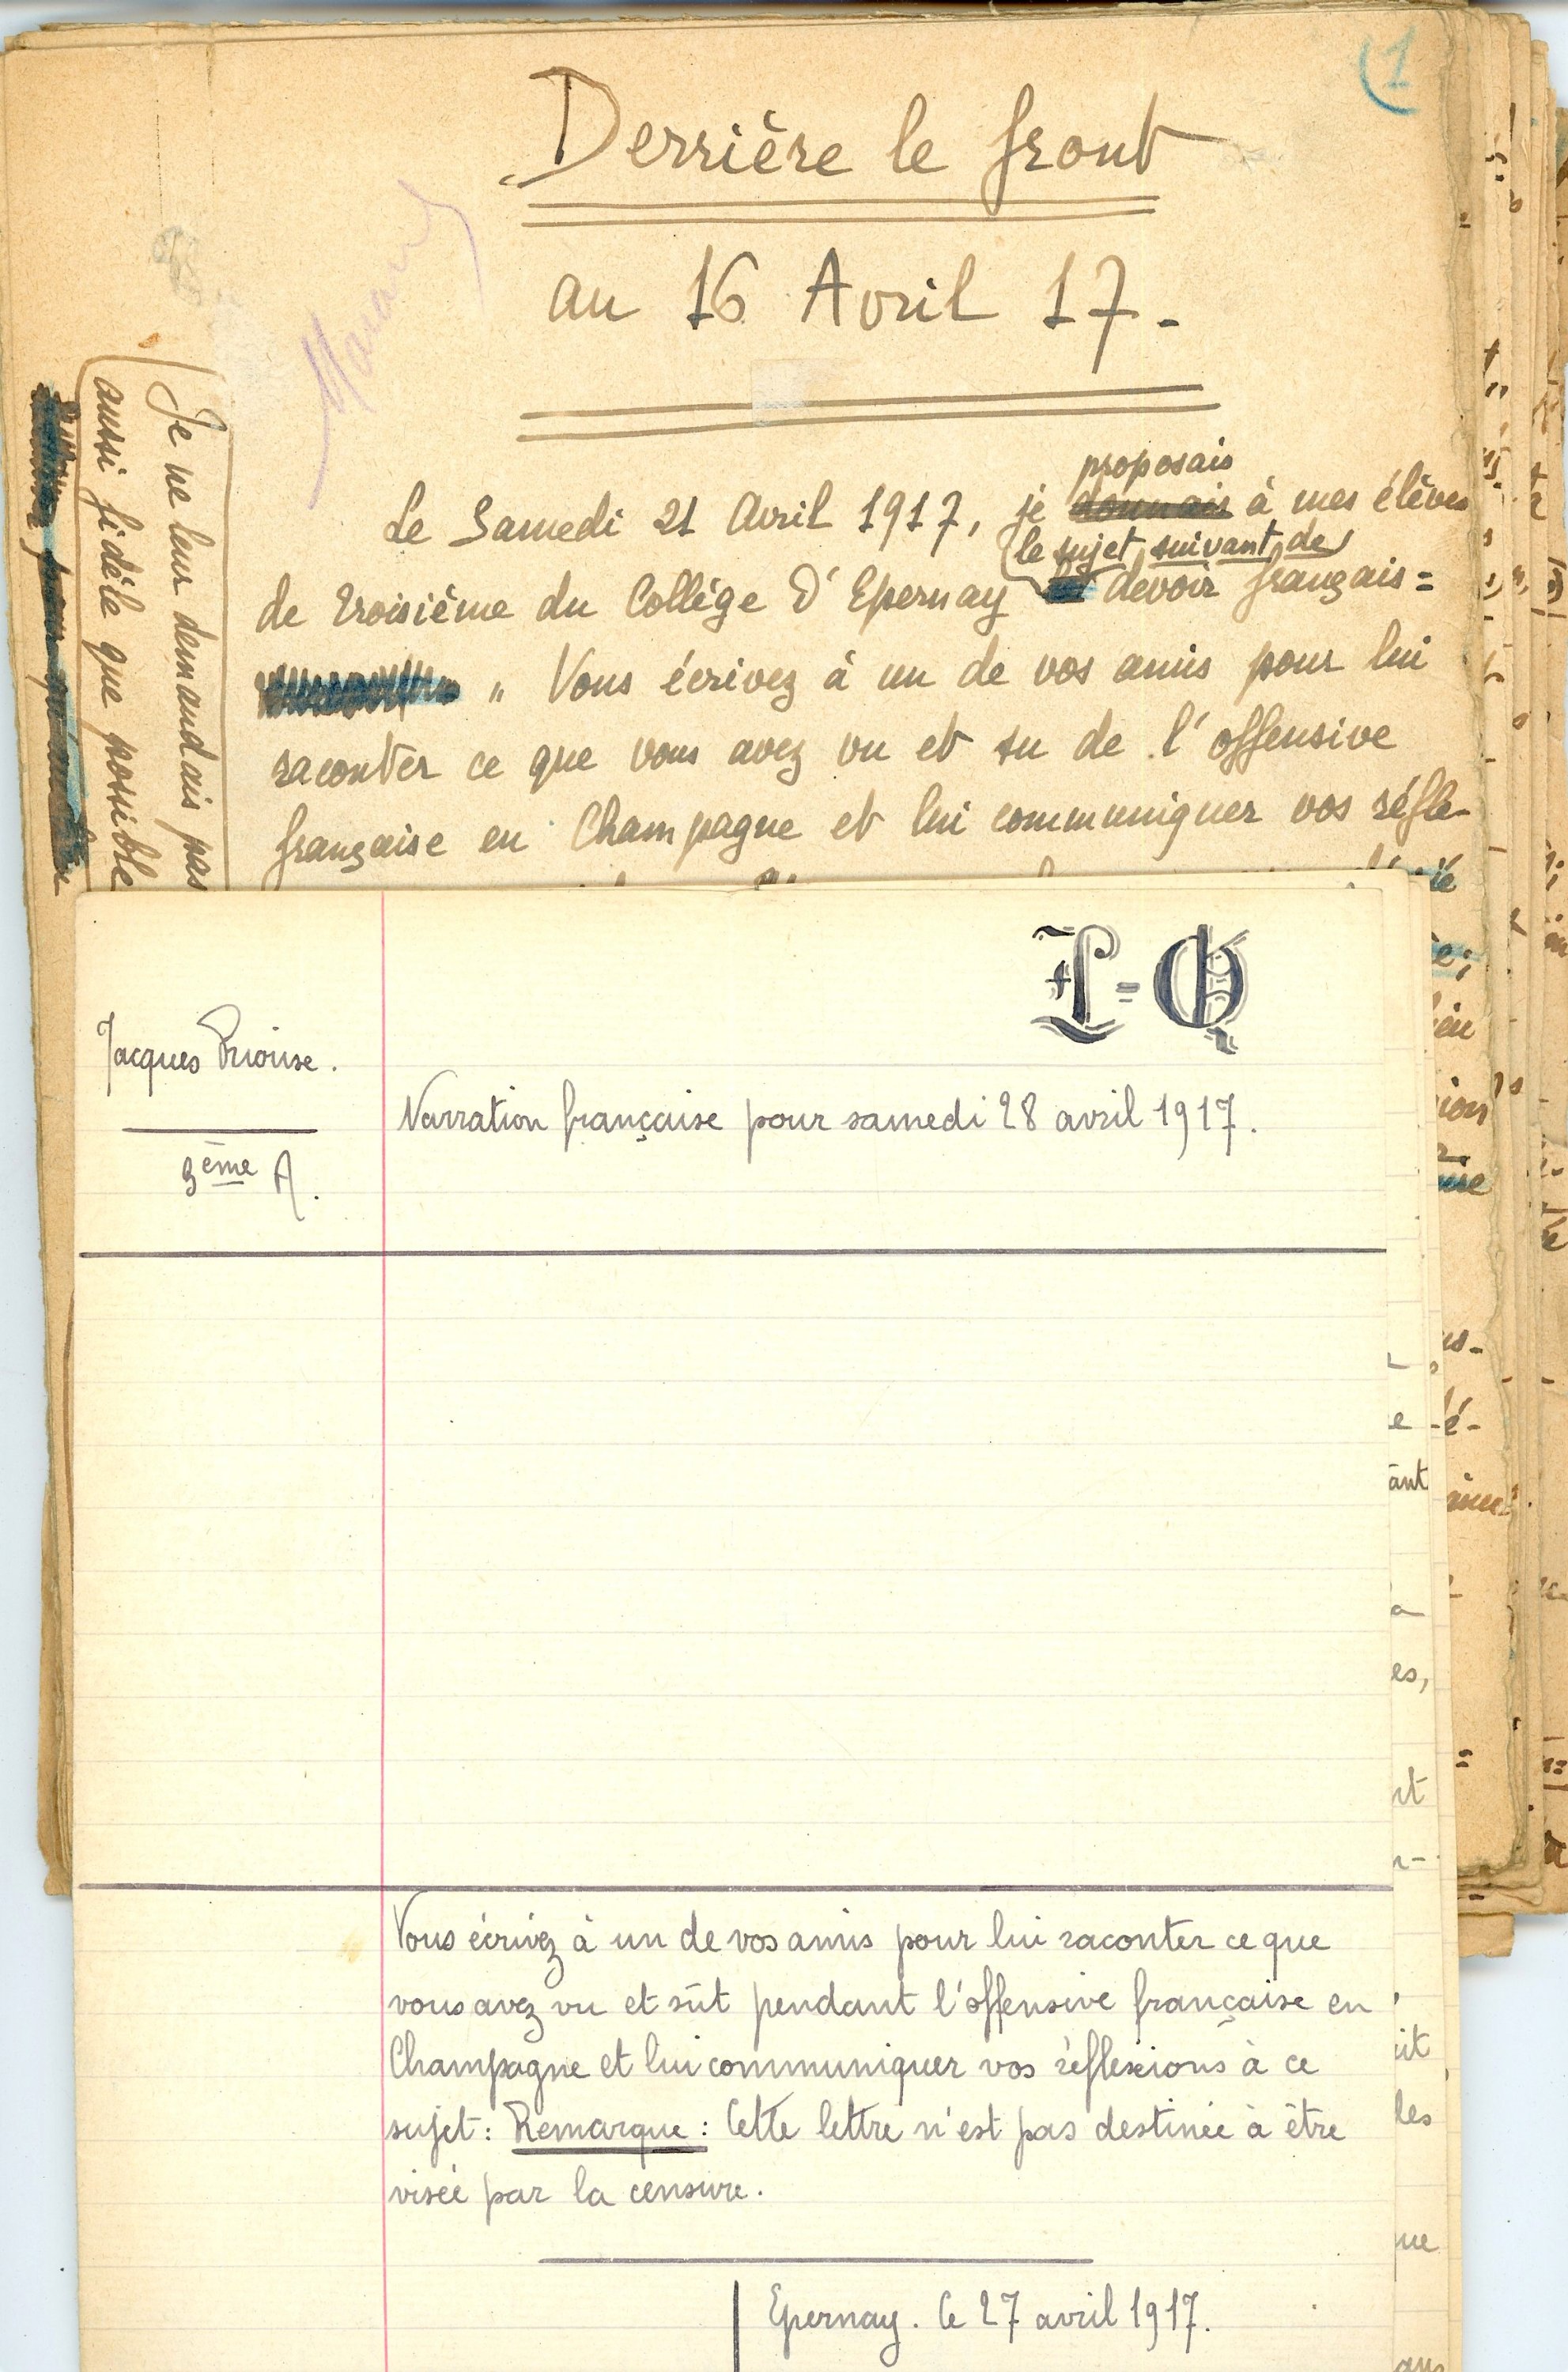 1
Derrière le front
au 16 Avril 17.
proposais
Le Samedi 21 Avril 1917, je donnais à mes élèves
le sujet suivant de
de troisième du Collège d'Epernay devoir français =
" Vous écrivez à un de vos amis pour lui
raconter ce que vous avez vu et su de l'offensive
française en Champagne et lui communiquer vos réfle-
Je ne leur demandais pas
aussi fidèle que possible
Jacques
3ème A.
Narration française pour samedi 28 avril 1917.
Vous écrivez à un de vos amis pour lui raconter ce que
vous avez vu et sût pendant l'offensive française en
Champagne et lui communiquer vos réflexions à ce
sujet : Remarque : Cette lettre n'est pas destinée à être
visée par la censure.
Epernay. le 27 avril 1917.